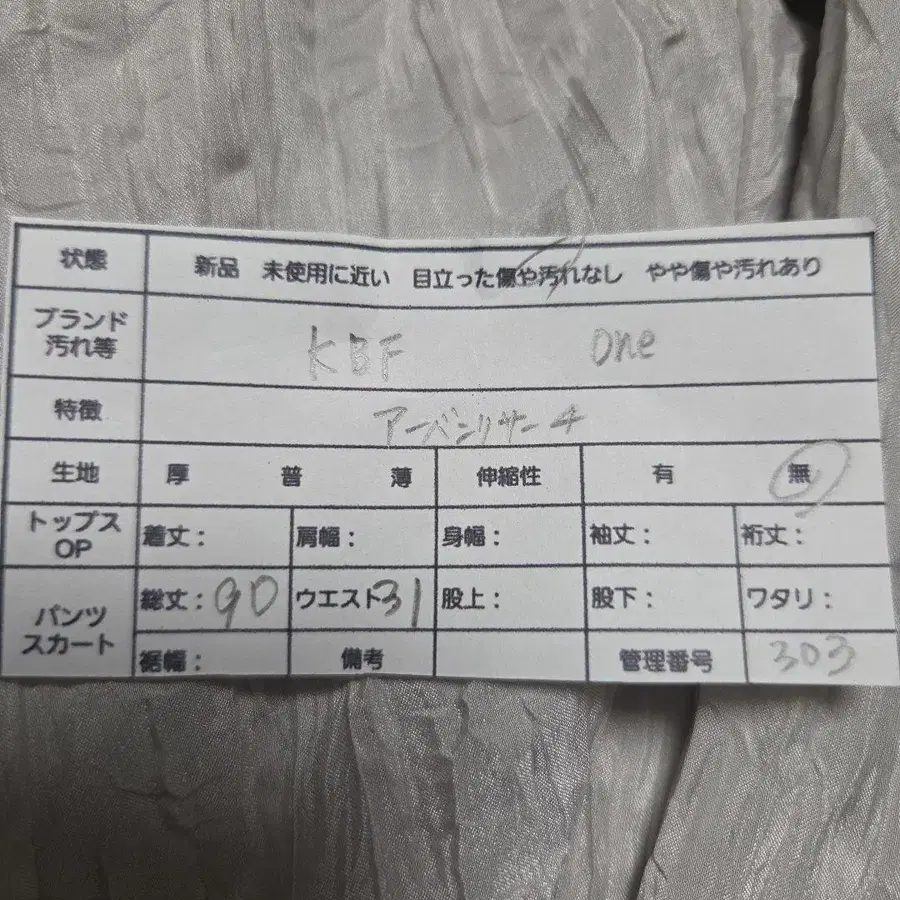 状態 新品 未使用に近い 目立った傷や汚れなし やや傷や汚れあり
ブランド
汚れ等 KBF one
特徴 アーバンリサーチ
生地 厚 普 薄 伸縮性 有 無
トップス
OP 着丈: 肩幅: 身幅: 袖丈: 裄丈:
パンツ
スカート 総丈:90 ウエスト31 股上: 股下: ワタリ:
裾幅: 備考 管理番号 303